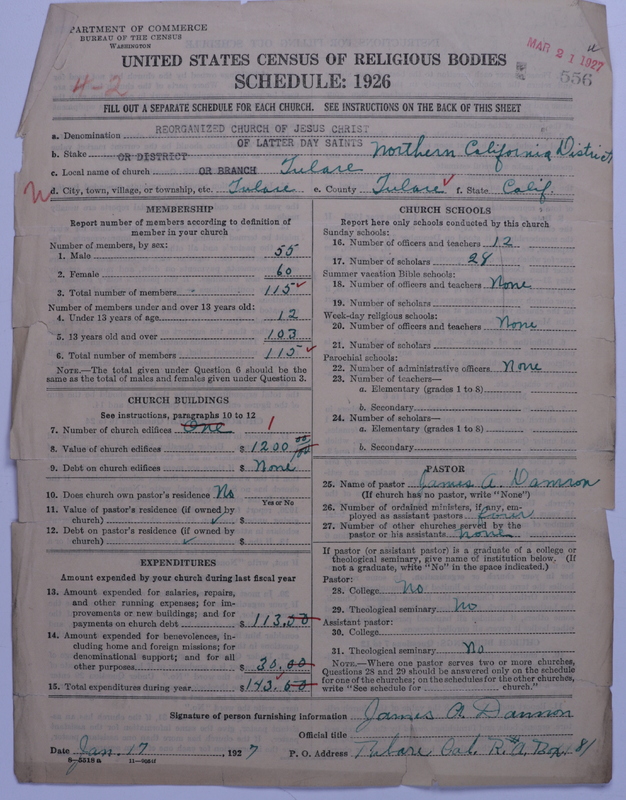 PARTMENT OF COMMERCE
BUREAU OF THE CENSUS
WASHINGTON
MAR 21 1927
556
UNITED STATES CENSUS OF RELIGIOUS BODIES
SCHEDULE: 1926
4-2
FILL OUT A SEPARATE SCHEDULE FOR EACH CHURCH. SEE INSTRUCTIONS ON THE BACK OF THIS SHEET
a. Denomination REORGANIZED CHURCH OF JESUS CHRIST
OF LATTER DAY SAINTS
b. Stake OR DISTRICT Northern California District
c. Local name of church OR BRANCH Tulare
d. City, town, village, or township, etc. Tulare e. County Tulare f. State Calif.
MEMBERSHIP
Report number of members according to definition of
member in your church
Number of members, by sex:
1. Male 55
2. Female 60
3. Total number of members 115
Number of members under and over 13 years old:
4. Under 13 years of age 12
5. 13 years old and over 103
6. Total number of members 115
NOTE.—The total given under Question 6 should be the
same as the total of males and females given under Question 3.
CHURCH BUILDINGS
See instructions, paragraphs 10 to 12
7. Number of church edifices One 1
8. Value of church edifices $ 1200 00/100
9. Debt on church edifices $ None
10. Does church own pastor's residence No
Yes or No
11. Value of pastor's residence (if owned by
church) $
12. Debt on pastor's residence (if owned by
church) $
EXPENDITURES
Amount expended by your church during last fiscal year
13. Amount expended for salaries, repairs,
and other running expenses; for im-
provements or new buildings; and for
payments on church debt $ 113.50
14. Amount expended for benevolences, in-
cluding home and foreign missions; for
denominational support; and for all
other purposes $ 30.00
15. Total expenditures during year $ 143.50
CHURCH SCHOOLS
Report here only schools conducted by this church
Sunday schools:
16. Number of officers and teachers 12
17. Number of scholars 28
Summer vacation Bible schools:
18. Number of officers and teachers None
19. Number of scholars
Week-day religious schools:
20. Number of officers and teachers None
21. Number of scholars
Parochial schools:
22. Number of administrative officers None
23. Number of teachers—
a. Elementary (grades 1 to 8)
b. Secondary
24. Number of scholars—
a. Elementary (grades 1 to 8)
b. Secondary
PASTOR
25. Name of pastor James A. Damron
(If church has no pastor, write "None")
26. Number of ordained ministers, if any, em-
ployed as assistant pastors
27. Number of other churches served by the
pastor or his assistants none
If pastor (or assistant pastor) is a graduate of a college or
theological seminary, give name of institution below. (If
not a graduate, write "No" in the space indicated.)
Pastor:
28. College No
29. Theological seminary No
Assistant pastor:
30. College
31. Theological seminary No
NOTE.—Where one pastor serves two or more churches,
Questions 28 and 29 should be answered only on the schedule
for one of the churches; on the schedules for the other churches,
write "See schedule for church."
Signature of person furnishing information James A. Damron
Official title
Date Jan. 17, 1927 P. O. Address Tulare Cal. R. A. Box 81
8—5518 a